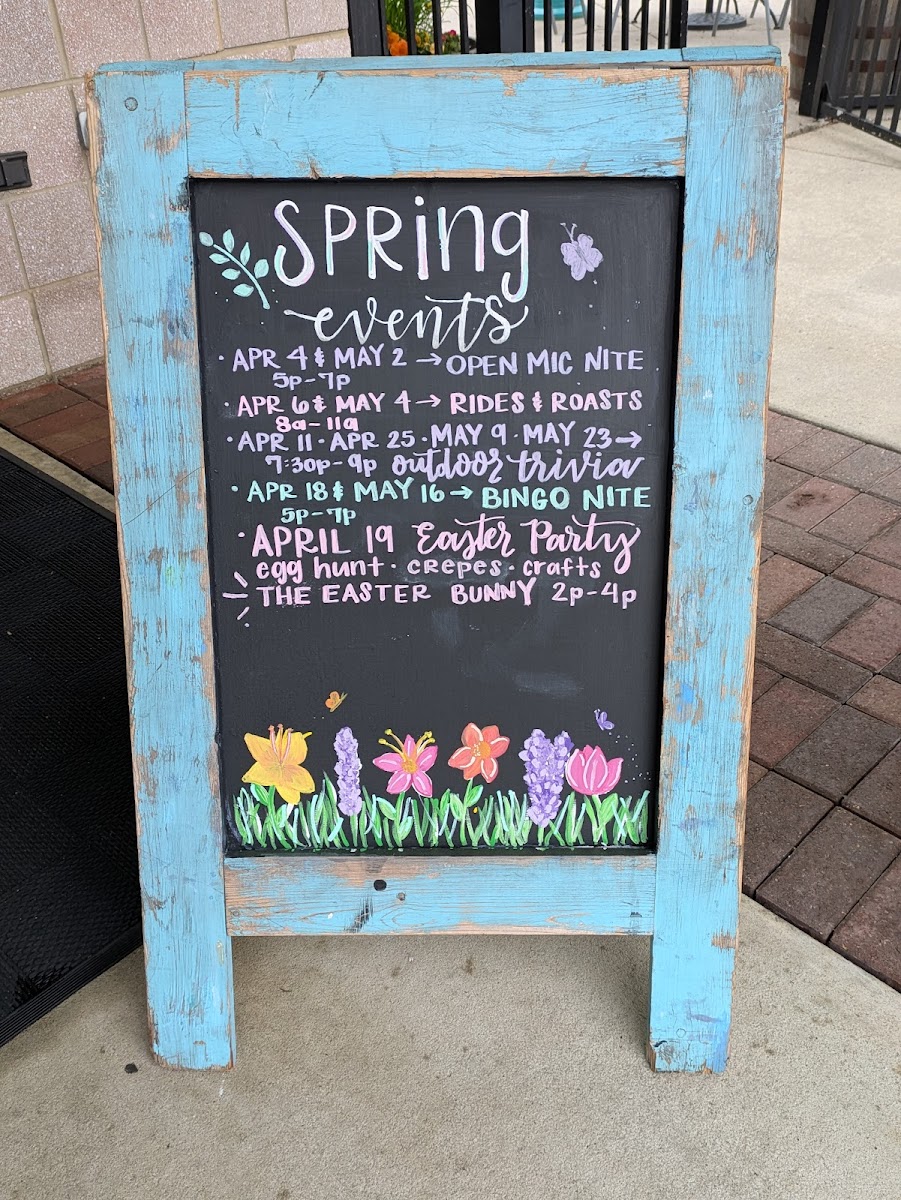 SPRING
events
· APR 4 & MAY 2 → OPEN MIC NITE
5p-7p
· APR 6 & MAY 4 → RIDES & ROASTS
8a-11a
· APR 11 · APR 25 · MAY 9 · MAY 23 →
7:30p-9p outdoor trivia
· APR 18 & MAY 16 → BINGO NITE
5p-7p
· APRIL 19 Easter Party
egg hunt · crepes · crafts
THE EASTER BUNNY 2p-4p